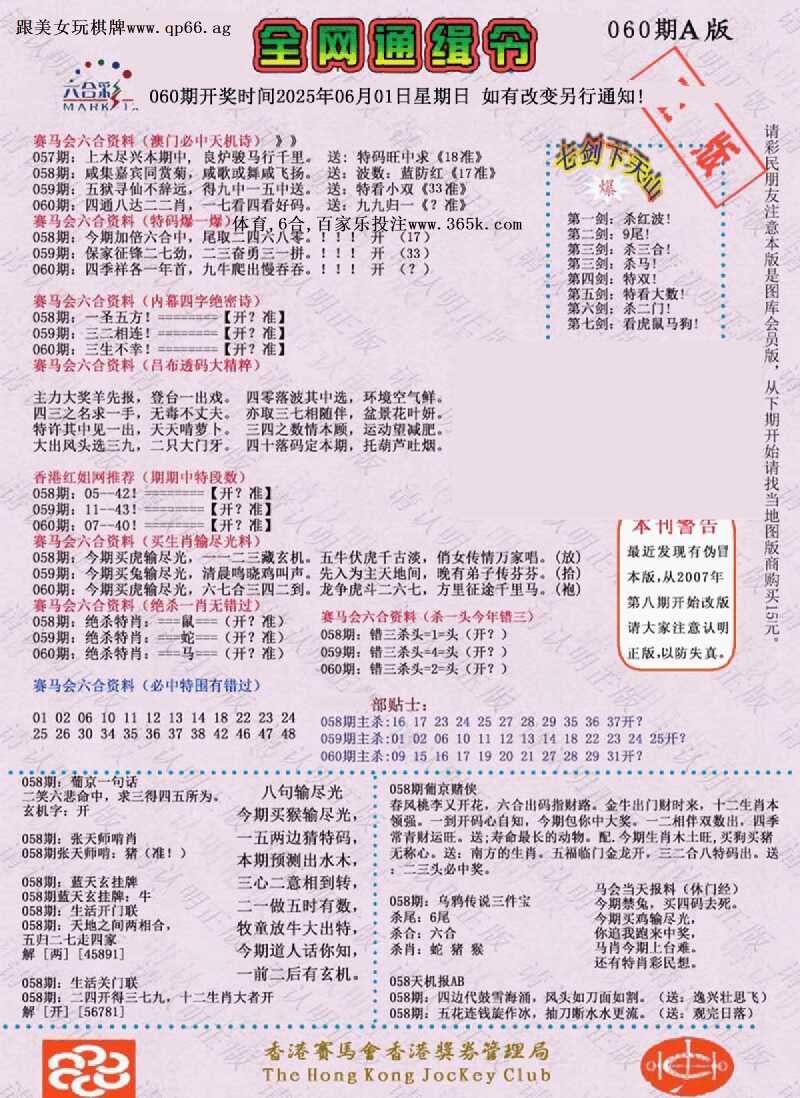 跟美女玩棋牌www.qp66.ag
全网通缉令
060期A版
六合彩
MARK SIX
060期开奖时间2025年06月01日星期日 如有改变另行通知!
赛马会六合资料（澳门必中天机诗）》》
057期：上木尽兴本期中, 良炉骏马行千里。 送：特码旺中求《18准》
058期：咸集嘉宾同赏菊, 咸歌或舞咸飞扬。 送：波数：蓝防红《17准》
059期：五狱寻仙不辞远, 得九中一五中送。 送：特看小双《33准》
060期：四通八达二二肖, 一七看四看好码。 送：九九归一《？准》
赛马会六合资料（特码爆一爆）
体育,6合,百家乐投注www.365k.com
058期：今期加倍六合中, 尾取二四六八零。！！！ 开 （17）
059期：保家征锋二七劲, 二三奋勇三一拼。！！！ 开 （33）
060期：四季祥各一年首, 九牛爬出慢吞吞。！！！ 开 （？）
赛马会六合资料（内幕四字绝密诗）
058期：一圣五方！========【开？准】
059期：三二相连！========【开？准】
060期：三生不幸！========【开？准】
赛马会六合资料（吕布透码大精粹）
主力大奖羊先报, 登台一出戏。 四零落波其中选, 环境空气鲜。
四三之名求一手, 无毒不丈夫。 亦取三七相随伴, 盆景花叶妍。
特许其中见一出, 天天啃萝卜。 三四之数情本顾, 运动望减肥。
大出风头选三九, 二只大门牙。 四十落码定本期, 托葫芦吐烟。
香港红姐网推荐（期期中特段数）
058期：05--42！========【开？准】
059期：11--43！========【开？准】
060期：07--40！========【开？准】
赛马会六合资料（买生肖输尽光料）
058期：今期买虎输尽光, 一一二三藏玄机。五牛伏虎千古淡, 俏女传情万家唱。(放)
059期：今期买兔输尽光, 清晨鸣晓鸡叫声。先入为主天地间, 晚有弟子传芬芬。(拾)
060期：今期买虎输尽光, 六七合三四二到。龙争虎斗二六七, 方里征途千里马。(袍)
赛马会六合资料（绝杀一肖无错过）
058期：绝杀特肖：===鼠===（开？准）
059期：绝杀特肖：===蛇===（开？准）
060期：绝杀特肖：===马===（开？准）
赛马会六合资料（杀一头今年错三）
058期：错三杀头=1=头（开？）
059期：错三杀头=4=头（开？）
060期：错三杀头=2=头（开？）
赛马会六合资料（必中特围有错过）
01 02 06 10 11 12 13 14 18 22 23 24
25 26 30 34 35 36 37 38 42 46 47 48
部贴士：
058期主杀:16 17 23 24 25 27 28 29 35 36 37开？
059期主杀:01 02 06 10 11 12 13 14 18 22 23 24 25开？
060期主杀:09 15 16 17 19 20 21 27 28 29 31开？
七剑下天山
爆
第一剑：杀红波！
第二剑：9尾！
第三剑：杀三合！
第三剑：杀马！
第四剑：特双！
第五剑：特看大数！
第六剑：杀二门！
第七剑：看虎鼠马狗！
版
请彩民朋友注意本版是图库会员版，从下期开始请找当地图版商购买15元。
本刊警告
最近发现有伪冒
本版,从2007年
第八期开始改版
请大家注意认明
正版,以防失真。
058期：葡京一句话
二笑六悲命中, 求三得四五所为。
玄机字：开
058期：张天师啃肖
058期张天师啃：猪（准！）
058期：蓝天玄挂牌
058期蓝天玄挂牌：牛
058期：生活开门联
058期：天地之间两相合,
五归二七走四家
解 [两] [45891]
058期：生活关门联
058期：二四开得三七九, 十二生肖大者开
解 [开] [56781]
八句输尽光
今期买猴输尽光，
一五两边猜特码，
本期预测出水木，
三心二意相到转，
二一做五时有数，
牧童放牛大出特，
今期道人话你知，
一前二后有玄机。
058期葡京赌侠
春风桃李又开花, 六合出码指财路。金牛出门财时来, 十二生肖本
领强。一到开码心自知, 今期包你中大奖。一二相伴双数出, 四季
常青财运旺。送;寿命最长的动物。配.今期生肖木土旺, 买狗买猪
无称心。送：南方的生肖。五福临门金龙开, 三二合八特码出。送
：二三头必中奖。
058期：乌鸦传说三件宝
杀尾：6尾
杀合：六合
杀肖：蛇 猪 猴
马会当天报料（休门经）
今期禁兔, 买四码去死。
今期买鸡输尽光,
你追我跑来中奖,
马肖今期上台难。
还有特肖彩民想。
058天机报AB
058期：四边代鼓雪海涌, 风头如刀面如割。（送：逸兴壮思飞）
058期：五花连钱旋作冰, 抽刀断水水更流。（送：观完日落）
香港賽馬會香港獎券管理局
The Hong Kong Jockey Club